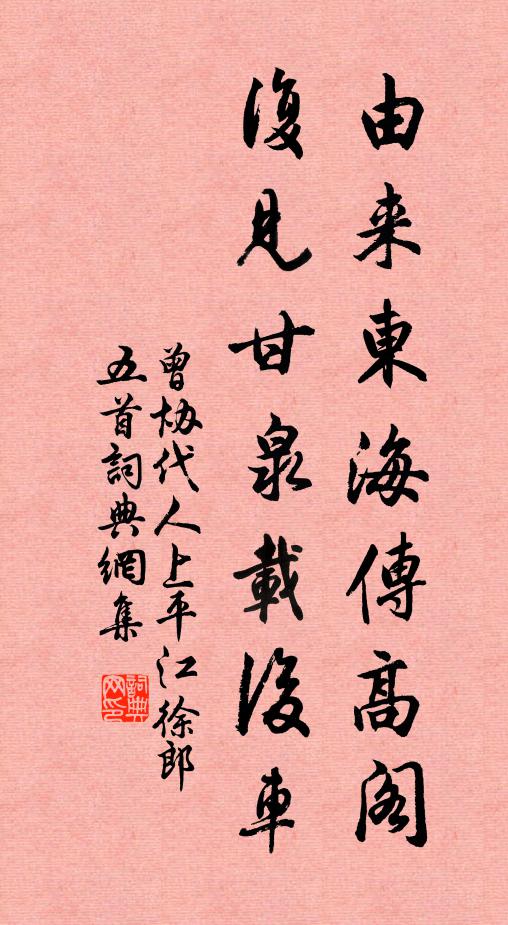 由来東海傳高閣
復見甘泉載後車
曾協代人上平江徐郎
五首詞典網集
詞典
网印